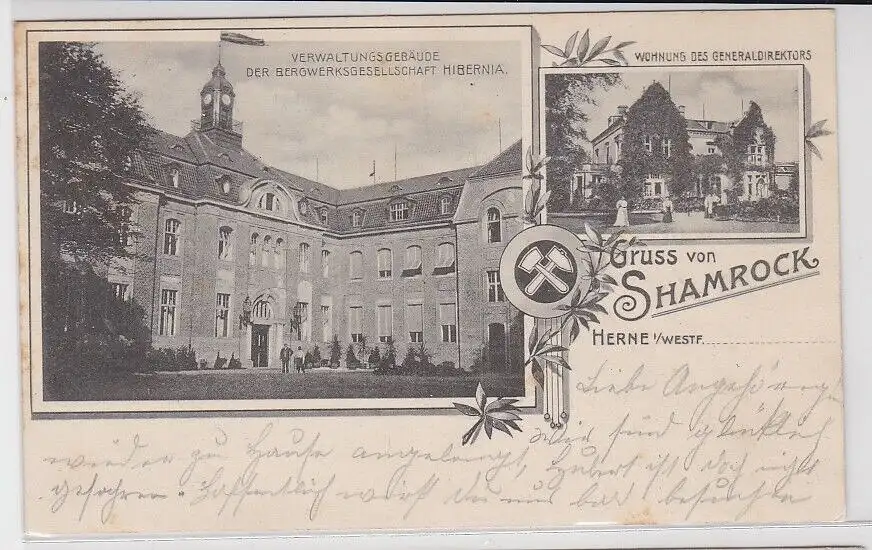 VERWALTUNGSGEBÄUDE
DER BERGWERKSGESELLSCHAFT HIBERNIA.
WOHNUNG DES GENERALDIREKTORS
Gruss von
SHAMROCK
HERNE I/WESTF.
Liebe Angehörige
Wir sind glücklich
wieder zu Hause angelangt, Hubert ist doch nicht
gefahren. Hoffentlich wirst du uns bald besuchen